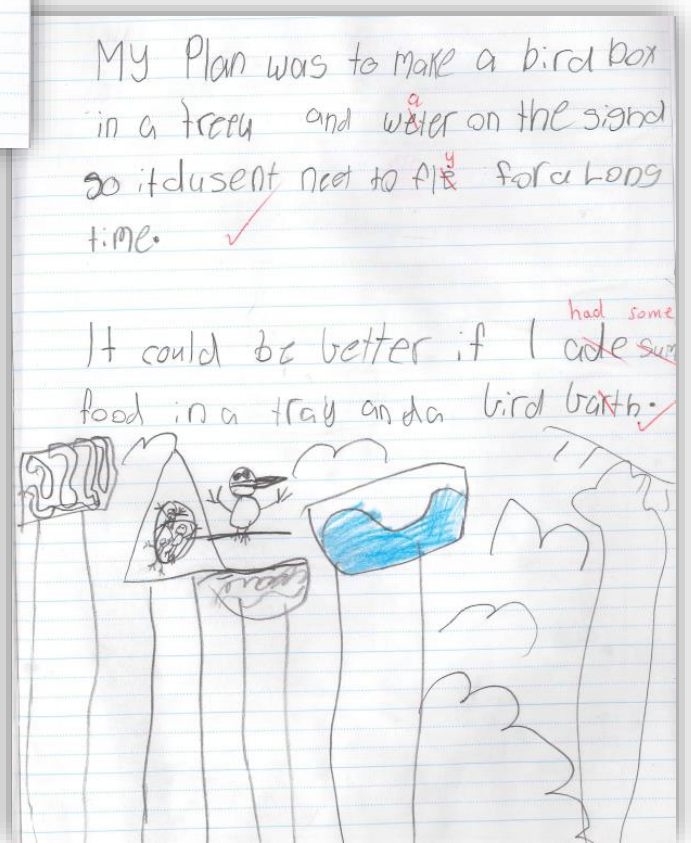 My Plan was to make a bird box
a
in a treey and weter on the signd
y
so it dusent neet to fle for a Long
time.
had some
It could be better if I ade sum
food in a tray and a bird barth.